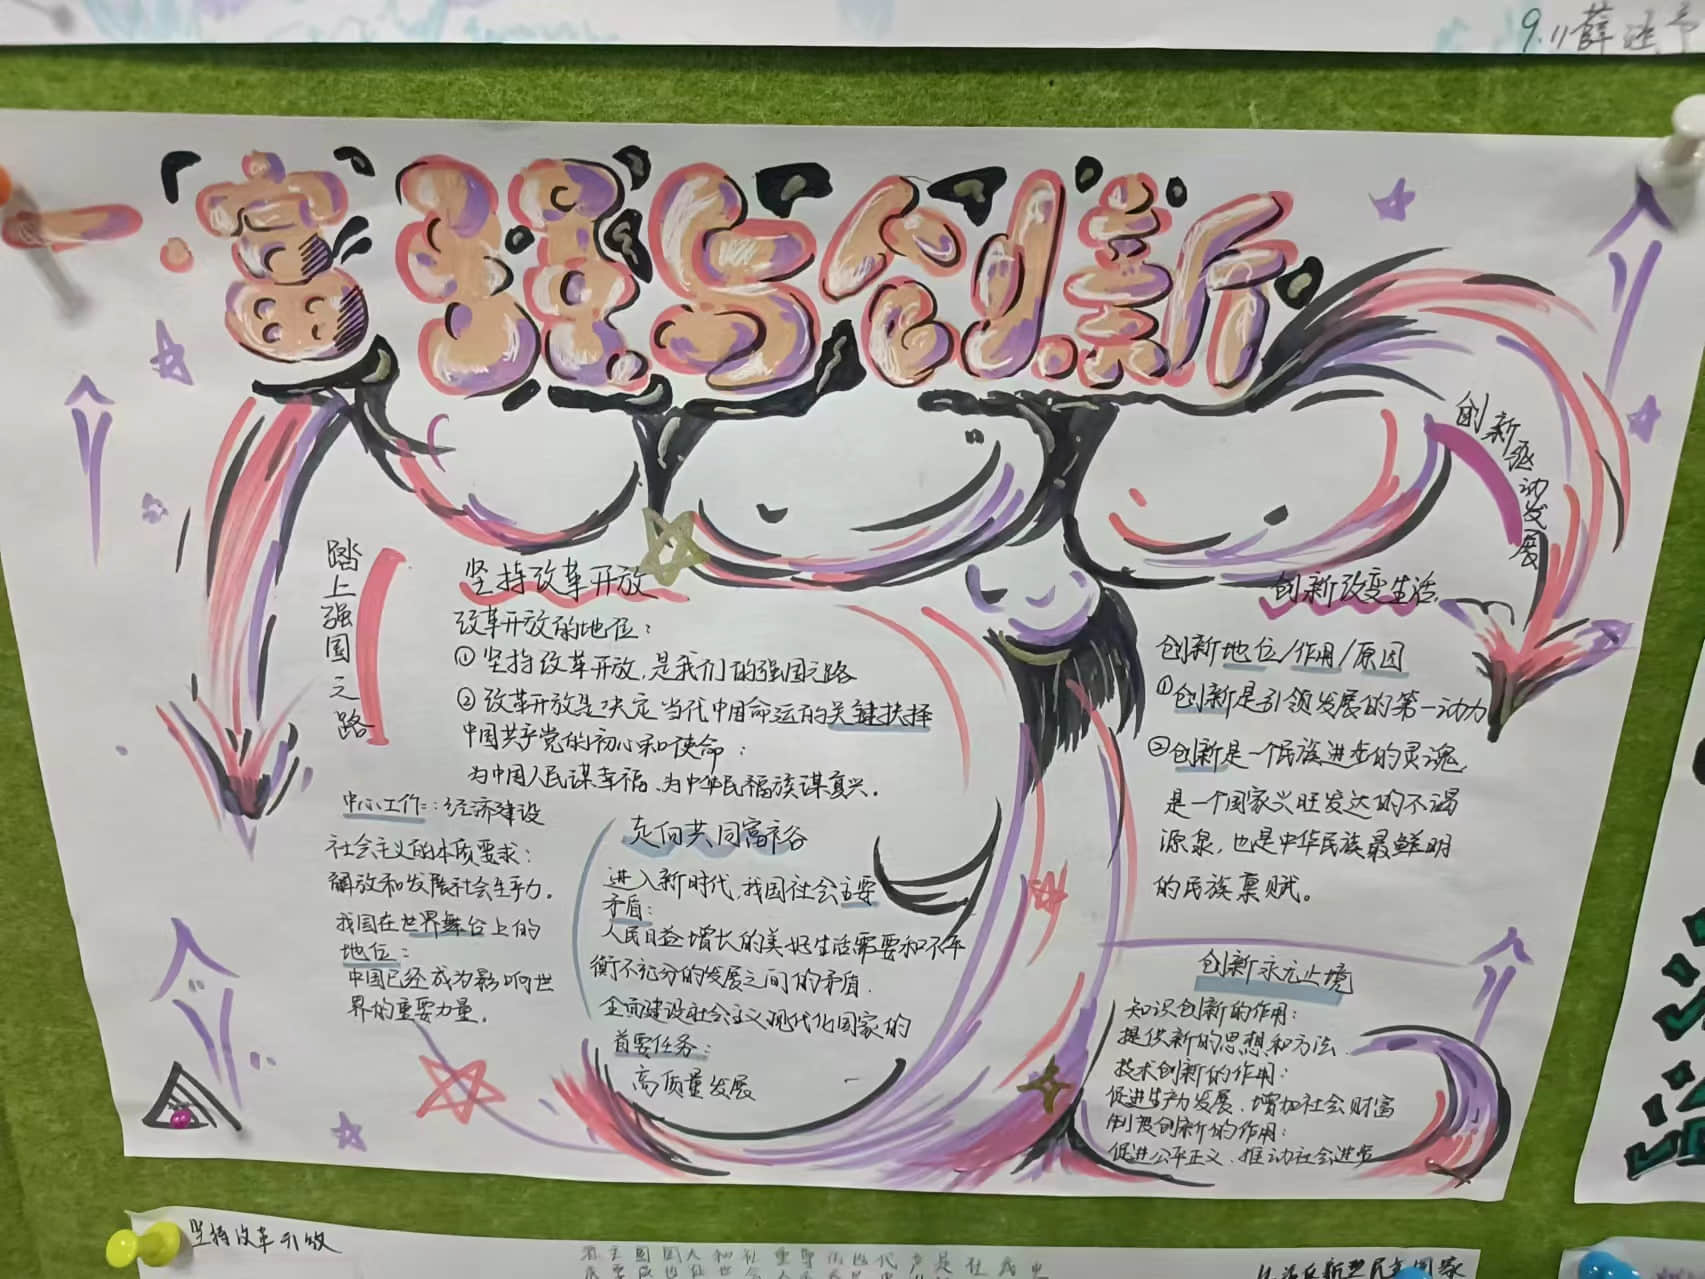 9.11薛
一.富强与创新
踏上强国之路
坚持改革开放
改革开放的地位：
①坚持改革开放，是我们的强国之路
②改革开放是决定当代中国命运的关键抉择
中国共产党的初心和使命：
为中国人民谋幸福、为中华民福族谋复兴。
中心工作：经济建设
社会主义的本质要求：
解放和发展社会生产力。
我国在世界舞台上的
地位：
中国已经成为影响世
界的重要力量。
走向共同富裕
进入新时代，我国社会主要
矛盾：
人民日益增长的美好生活需要和不平
衡不充分的发展之间的矛盾.
全面建设社会主义现代化国家的
首要任务：
高质量发展
创新驱动发展
创新改变生活.
创新地位/作用/原因
①创新是引领发展的第一动力
②创新是一个民族进步的灵魂，
是一个国家兴旺发达的不竭
源泉，也是中华民族最鲜明
的民族禀赋。
创新永无止境
知识创新的作用：
提供新的思想和方法.
技术创新的作用：
促进生产力发展、增加社会财富
制度创新的作用：
促进公平正义、推动社会进步
坚持改革开放